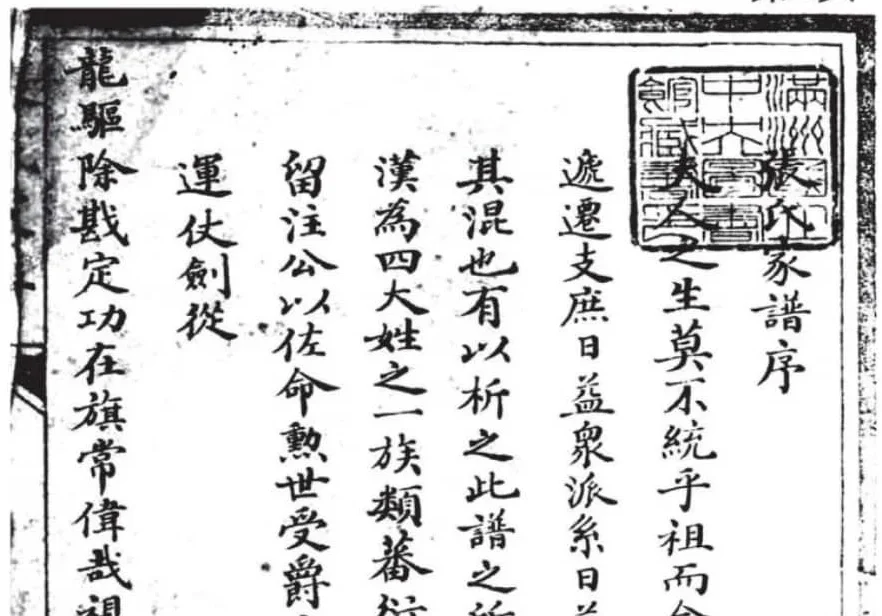 滿洲
中央圖書
館藏書印
張氏家譜序
夫人之生莫不統乎祖而
遞遷支庶日益衆派系日益
其混也有以析之此譜之所
漢為四大姓之一族類蕃衍
留注公以佐命勲世受爵
運仗劍從
龍驅除戡定功在旗常偉哉祖